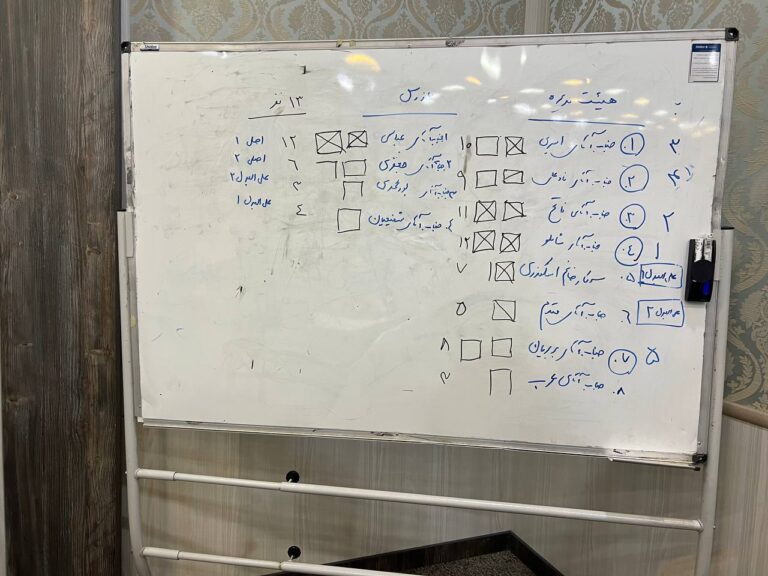 هیئت مدیره
۳ ۱. جناب آقای امیری ۱۰
۲. جناب آقای ۹
۲ ۳. جناب آقای فاتح ۱۱
۱ ۴. جناب آقای شاملو ۱۲
علی البدل ۱ ۵. سرکار خانم اسکندری ۷
علی البدل ۲ ۶ جناب آقای مقدم ۵
۵ ۷. جناب آقای بربریان ۸
۸. جناب آقای عرب ۳
بازرس
۱. جناب آقای عباسی ۱۲ اصل ۱
۲. جناب آقای جعفری ۶ اصل ۲
۳. جناب آقای ۳ علی البدل ۲
۴. جناب آقای ۴ علی البدل ۱
۱۳ نفر